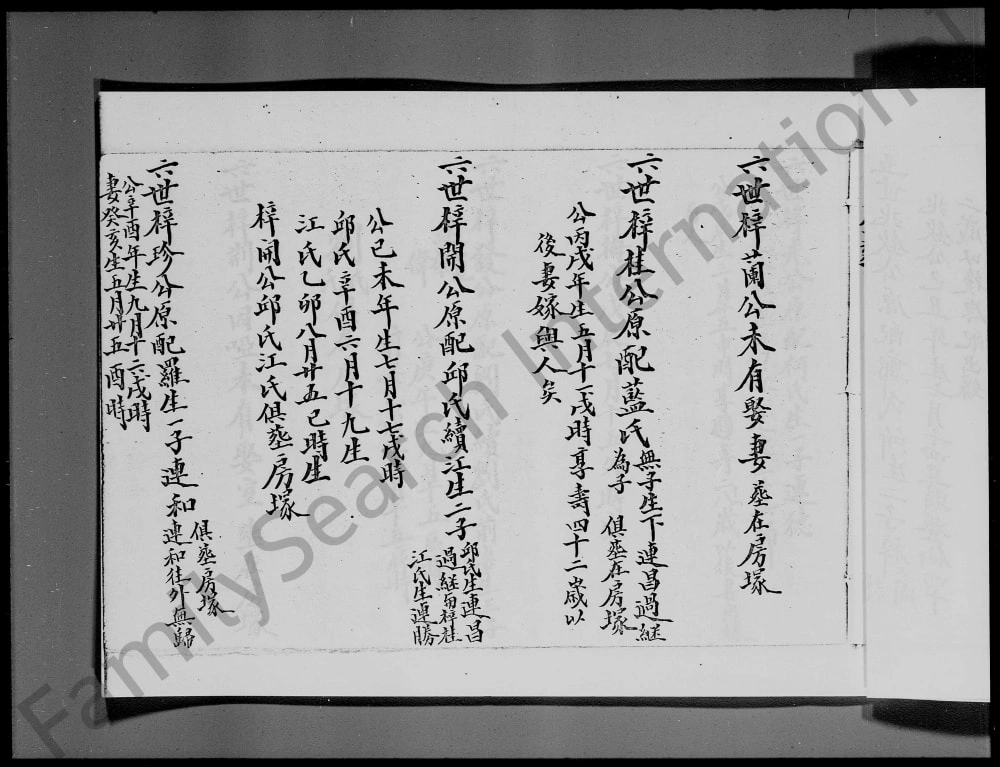 六世梓蘭公未有娶妻 葬在房塚
六世梓桂公原配藍氏 無子生下連昌過継
為子 俱葬在房塚
公丙戌年生五月十一戌時享壽四十二歲以
後妻嫁與人矣
六世梓開公原配邱氏續江生二子 邱氏生連昌
過継與梓桂
江氏生連勝
公已未年生七月十七戌時
邱氏辛酉六月十九生
江氏乙卯八月廿五已時生
梓開公邱氏江氏俱葬房塚
六世梓珍公原配羅生一子連和 俱葬房塚
連和徃外無歸
公辛酉年生九月十六戌時
妻癸亥生五月廿五酉時
FamilySearch International